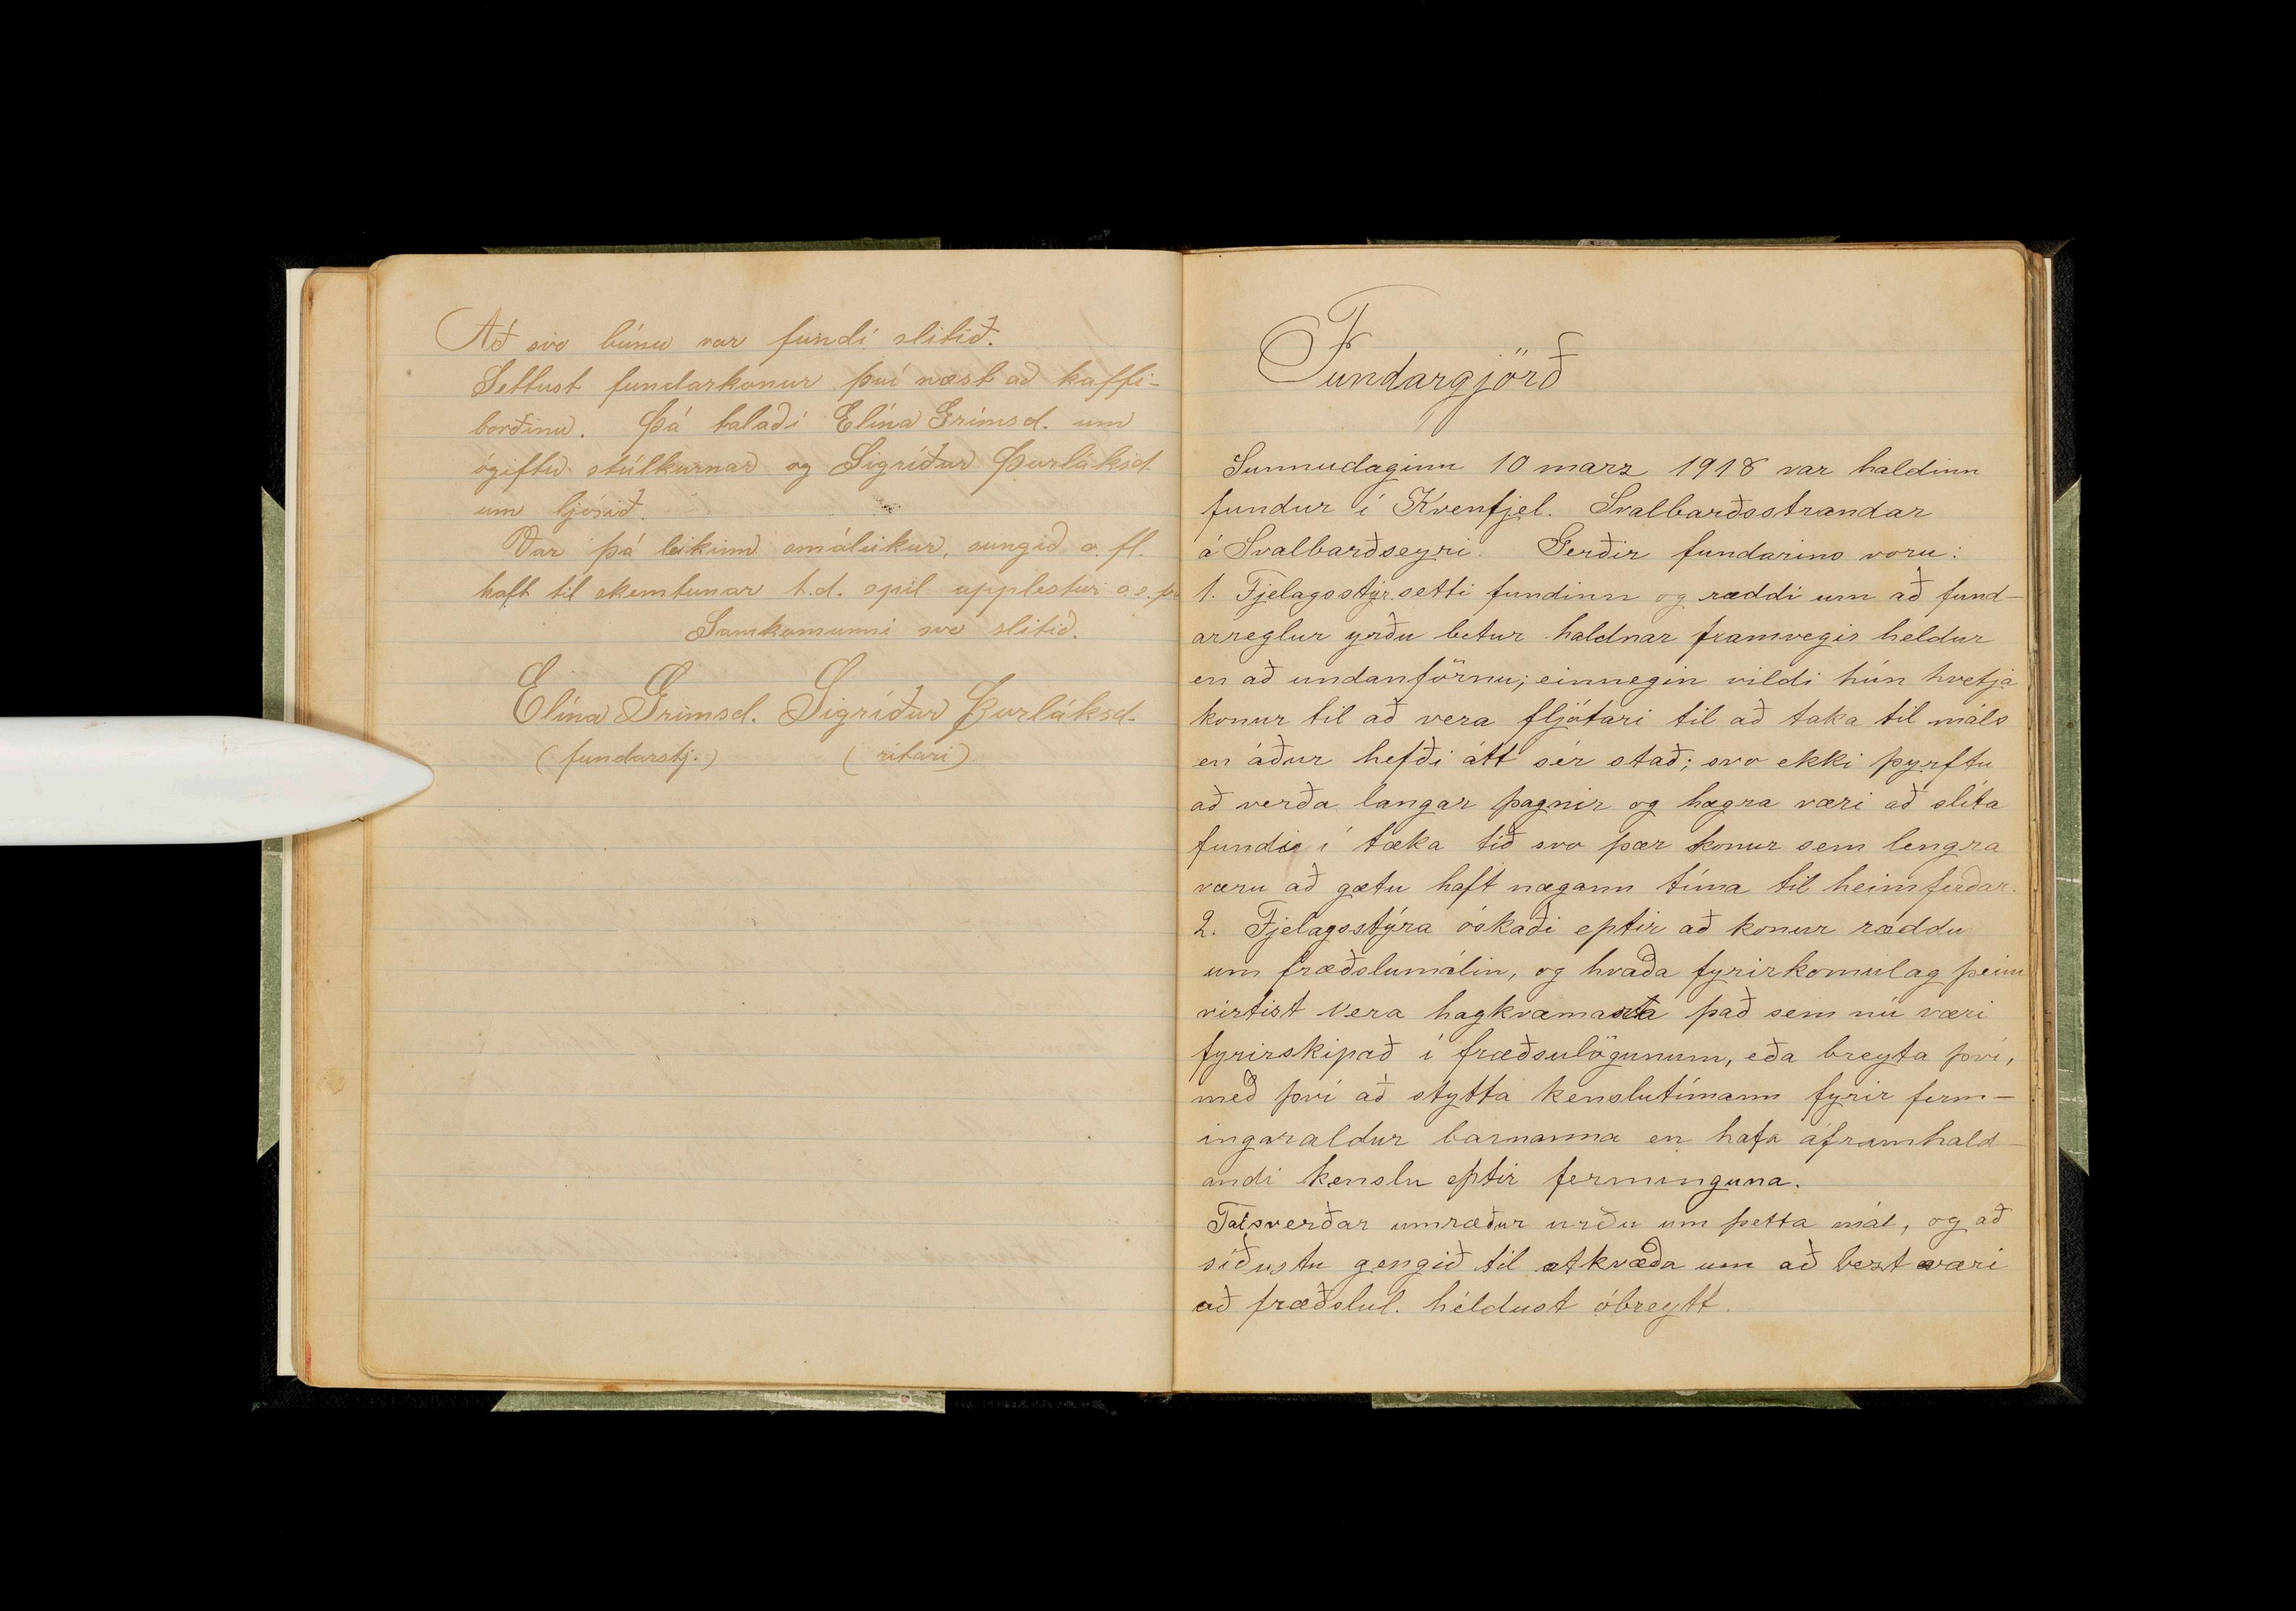 Að svo búnu var fundi slitið.
Settust fundarkonur því næst að kaffi-
borðinu. Þá talaði Elína Grímsd. um
ógiftu stúlkurnar og Sigríður Þorláksd.
um ljósið.
Var þá leikinn smáleikur, sungið o. fl.
haft til skemtunar t.d. spil upplestur o.s.fr
Samkomunni svo slitið.
Elína Grímsd. Sigríður Þorláksd.
(fundarstj.) (ritari)
Fundargjörð
Sunnudaginn 10 marz 1918 var haldinn
fundur í Kvenfjel. Svalbarðsstrandar
á Svalbarðseyri. Gerðir fundarins voru:
1. Fjelagsstýr. setti fundinn og ræddi um að fund-
arreglur yrðu betur haldnar framvegis heldur
en að undanförnu; einnegin vildi hún hvetja
konur til að vera fljótari til að taka til máls
en áður hefði átt sér stað; svo ekki þyrftu
að verða langar þagnir og hægra væri að slíta
fundi í tæka tíð svo þær konur sem lengra
væru að gætu haft nægann tíma til heimferðar.
2. Fjelagsstýra óskaði eptir að konur ræddu
um fræðslumálin, og hvaða fyrirkomulag þeim
virtist vera hagkvæmasta það sem nú væri
fyrirskipað í fræðsulögunum, eða breyta því,
með því að stytta kenslutímann fyrir ferm-
ingaraldur barnanna en hafa áframhald-
andi kenslu eptir ferminguna.
Talsverðar umræður urðu um þetta mál, og að
síðustu gengið til atkvæða um að bezt væri
að fræðslul. héldust óbreytt.